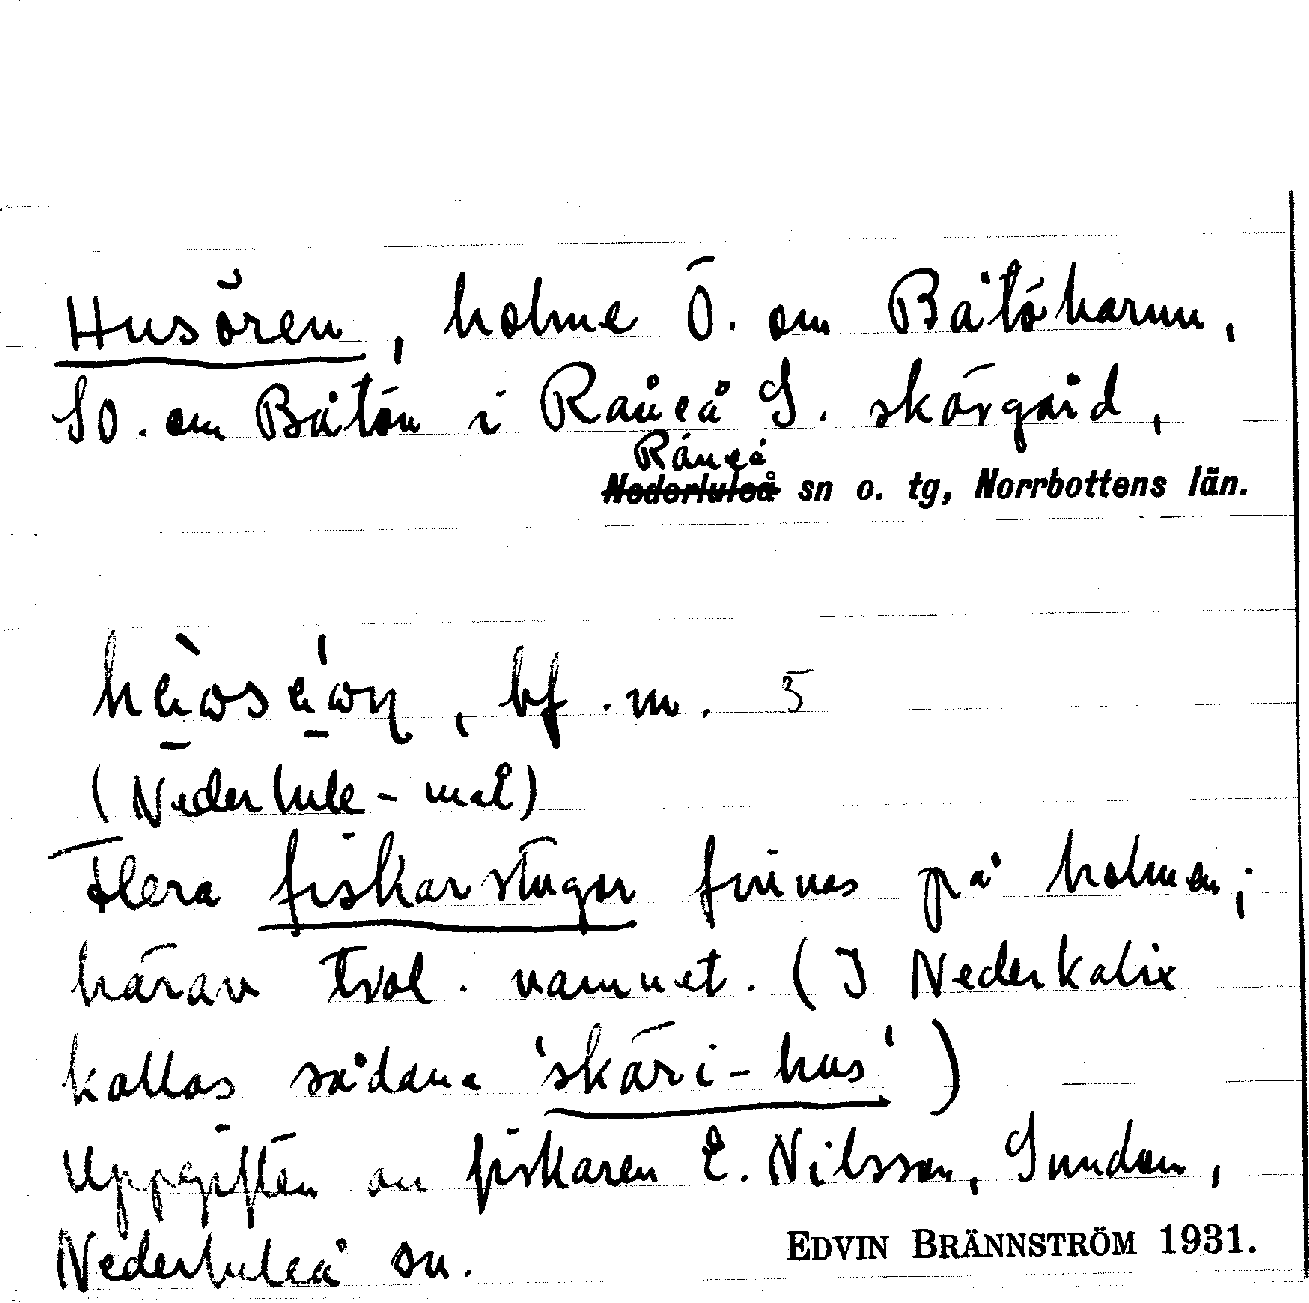 Husören, holme Ö. om Båtöharun,
SO. om Båtön i Råneå S. skärgård,
Råneå
Nederluleå sn o. tg, Norrbottens län.
bf. m. 5
(Nederlule-mål)
Flera fiskarstugor finnas på holmen;
härav trol. namnet. (I Nederkalix
kallas sådana 'skäri-hus')
Uppgiften av fiskaren E. Nilsson, Sundom,
Nederluleå sn.
EDVIN BRÄNNSTRÖM 1931.